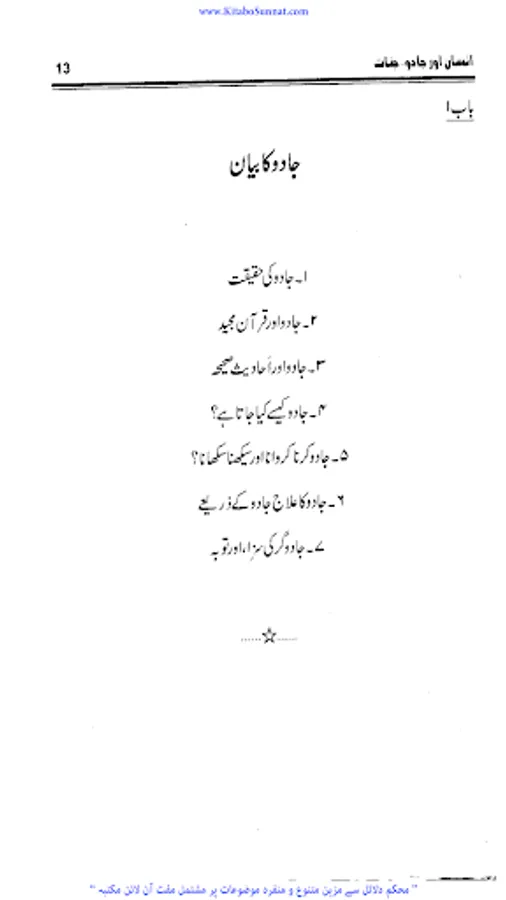 www.KitaboSunnat.com
انسان اور جادو۔ جنات
13
باب ۱
جادو کا بیان
۱۔ جادو کی حقیقت
۲۔ جادو اور قرآن مجید
۳۔ جادو اور أحادیث صحیحہ
۴۔ جادو کیسے کیا جاتا ہے؟
۵۔ جادو کرنا کروانا اور سیکھنا سکھانا؟
۶۔ جادو کا علاج جادو کے ذریعے
۷۔ جادوگر کی سزا، اور توبہ
......☆......
" محکم دلائل سے مزین متنوع و منفرد موضوعات پر مشتمل مفت آن لائن مکتبہ "